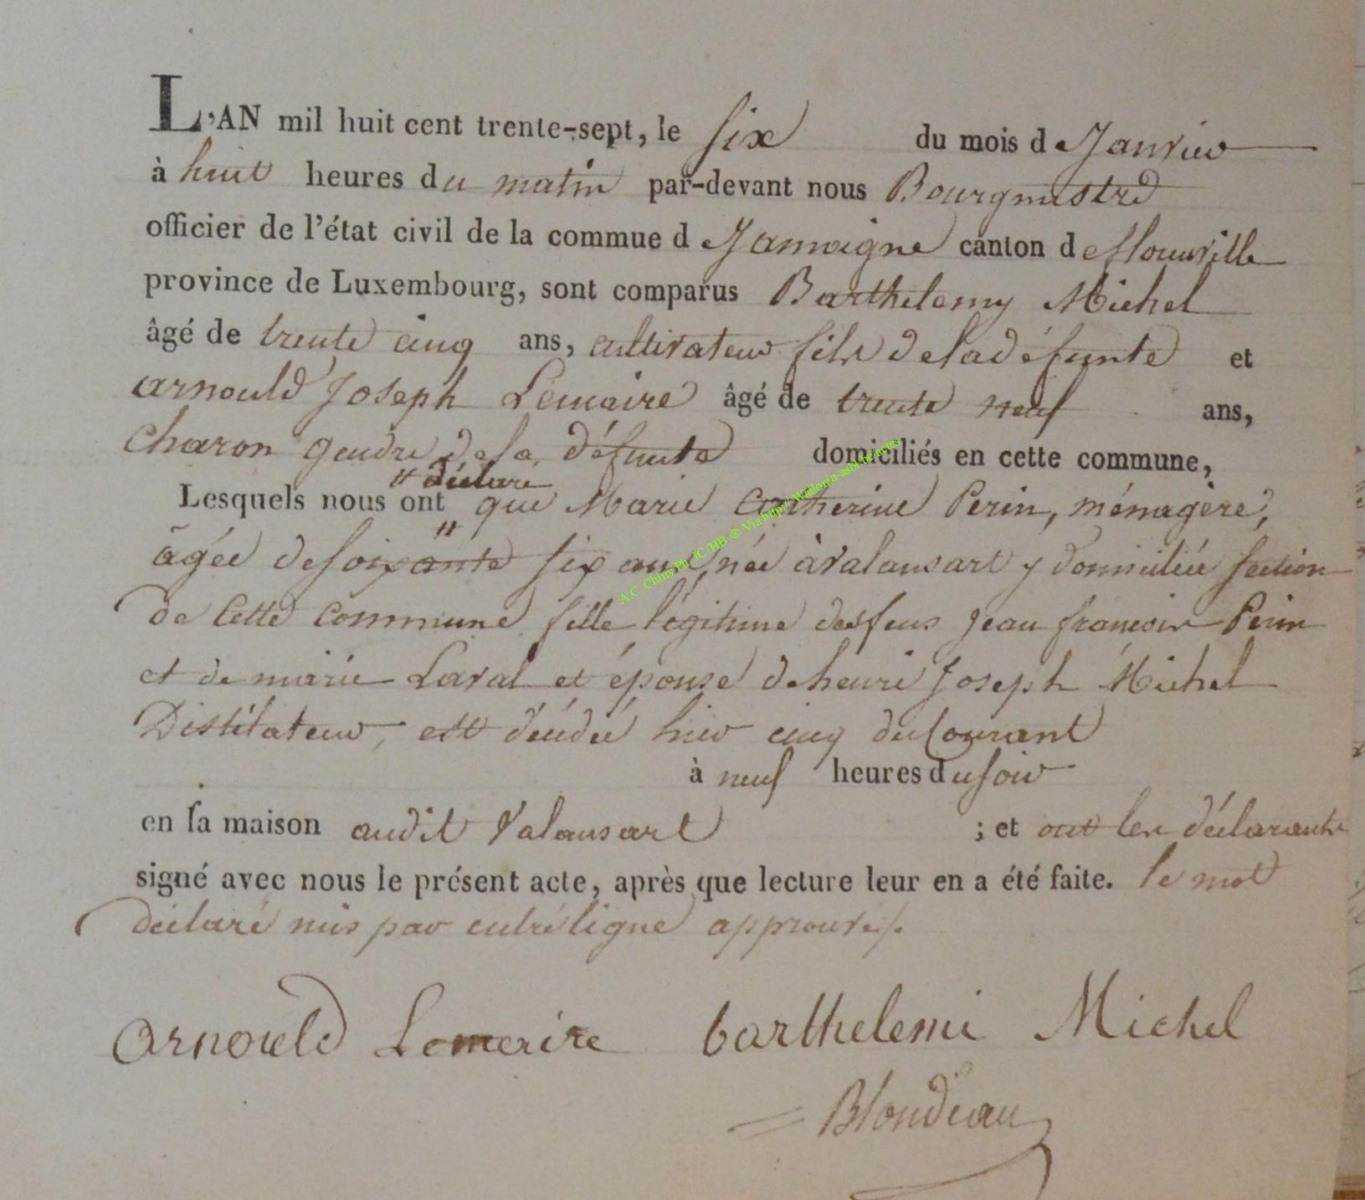 L'AN mil huit cent trente-sept, le six du mois de Janvier
à huit heures du matin par-devant nous Bourgmestre
officier de l'état civil de la commue d Jamoigne canton de florenville
province de Luxembourg, sont comparus Barthelemy Michel
âgé de trente cinq ans, cultivateur fils de la défunte et
arnould Joseph Lemaire âgé de trente neuf ans,
Charon gendre de la défunte domiciliés en cette commune,
" déclaré
Lesquels nous ont " que Marie Catherine Perin, ménagère,
âgée de soixante six ans, née à valansart y domiciliée section
de Cette Commune fille légitime des feus Jean francois Perin
et de marie Laval et épouse de henri Joseph Michel
Distilateur, est décédée hier cinq du Courant
à neuf heures du soir
en sa maison audit Valansart ; et ont les déclarants
signé avec nous le présent acte, après que lecture leur en a été faite. le mot
déclaré mis par entre ligne approuvé /.
Arnould Lemaire barthelemi Michel
Blondeau